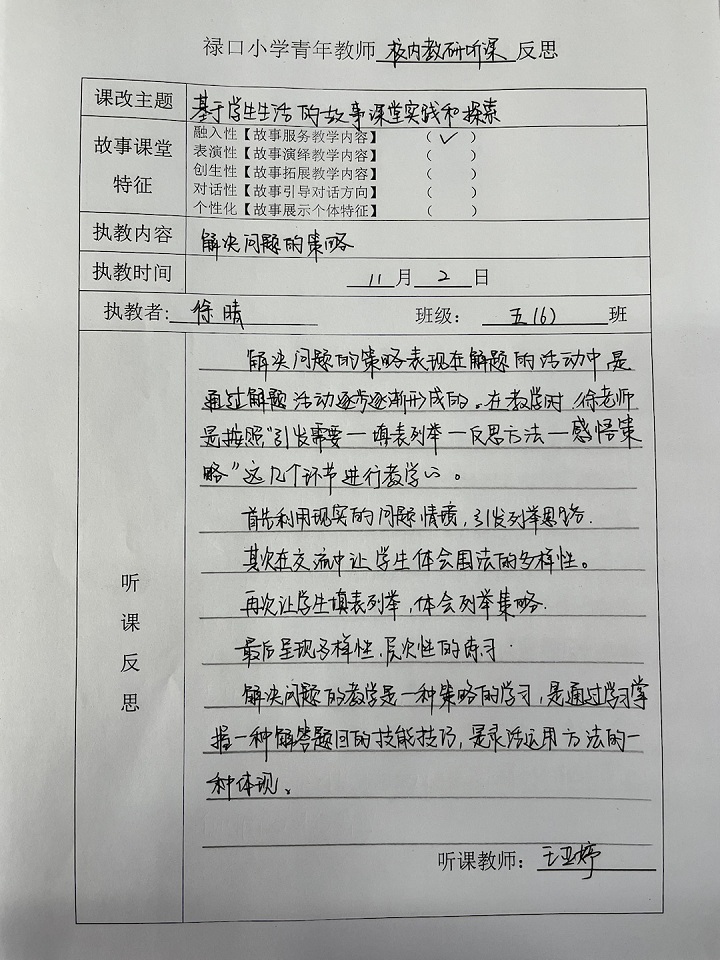 禄口小学青年教师 校内教研听课 反思
课改主题 基于学生生活的故事课堂实践和探索
故事课堂
特征
融入性【故事服务教学内容】 （ ✓ ）
表演性【故事演绎教学内容】 （ ）
创生性【故事拓展教学内容】 （ ）
对话性【故事引导对话方向】 （ ）
个性化【故事展示个体特征】 （ ）
执教内容 解决问题的策略
执教时间 11 月 2 日
执教者: 徐晴 班级： 五(6) 班
听课反思
解决问题的策略表现在解题的活动中,是
通过解题活动逐步逐渐形成的。在教学时,徐老师
是按照“引发需要—填表列举—反思方法—感悟策
略”这几个环节进行教学的。
首先利用现实的问题情境，引发列举思路.
其次在交流中让学生体会围法的多样性。
再次让学生填表列举，体会列举策略.
最后呈现多样性、层次性的练习.
解决问题的教学是一种策略的学习，是通过学习掌
握一种解答题目的技能技巧，是灵活运用方法的一
种体现。
听课教师： 王亚婷